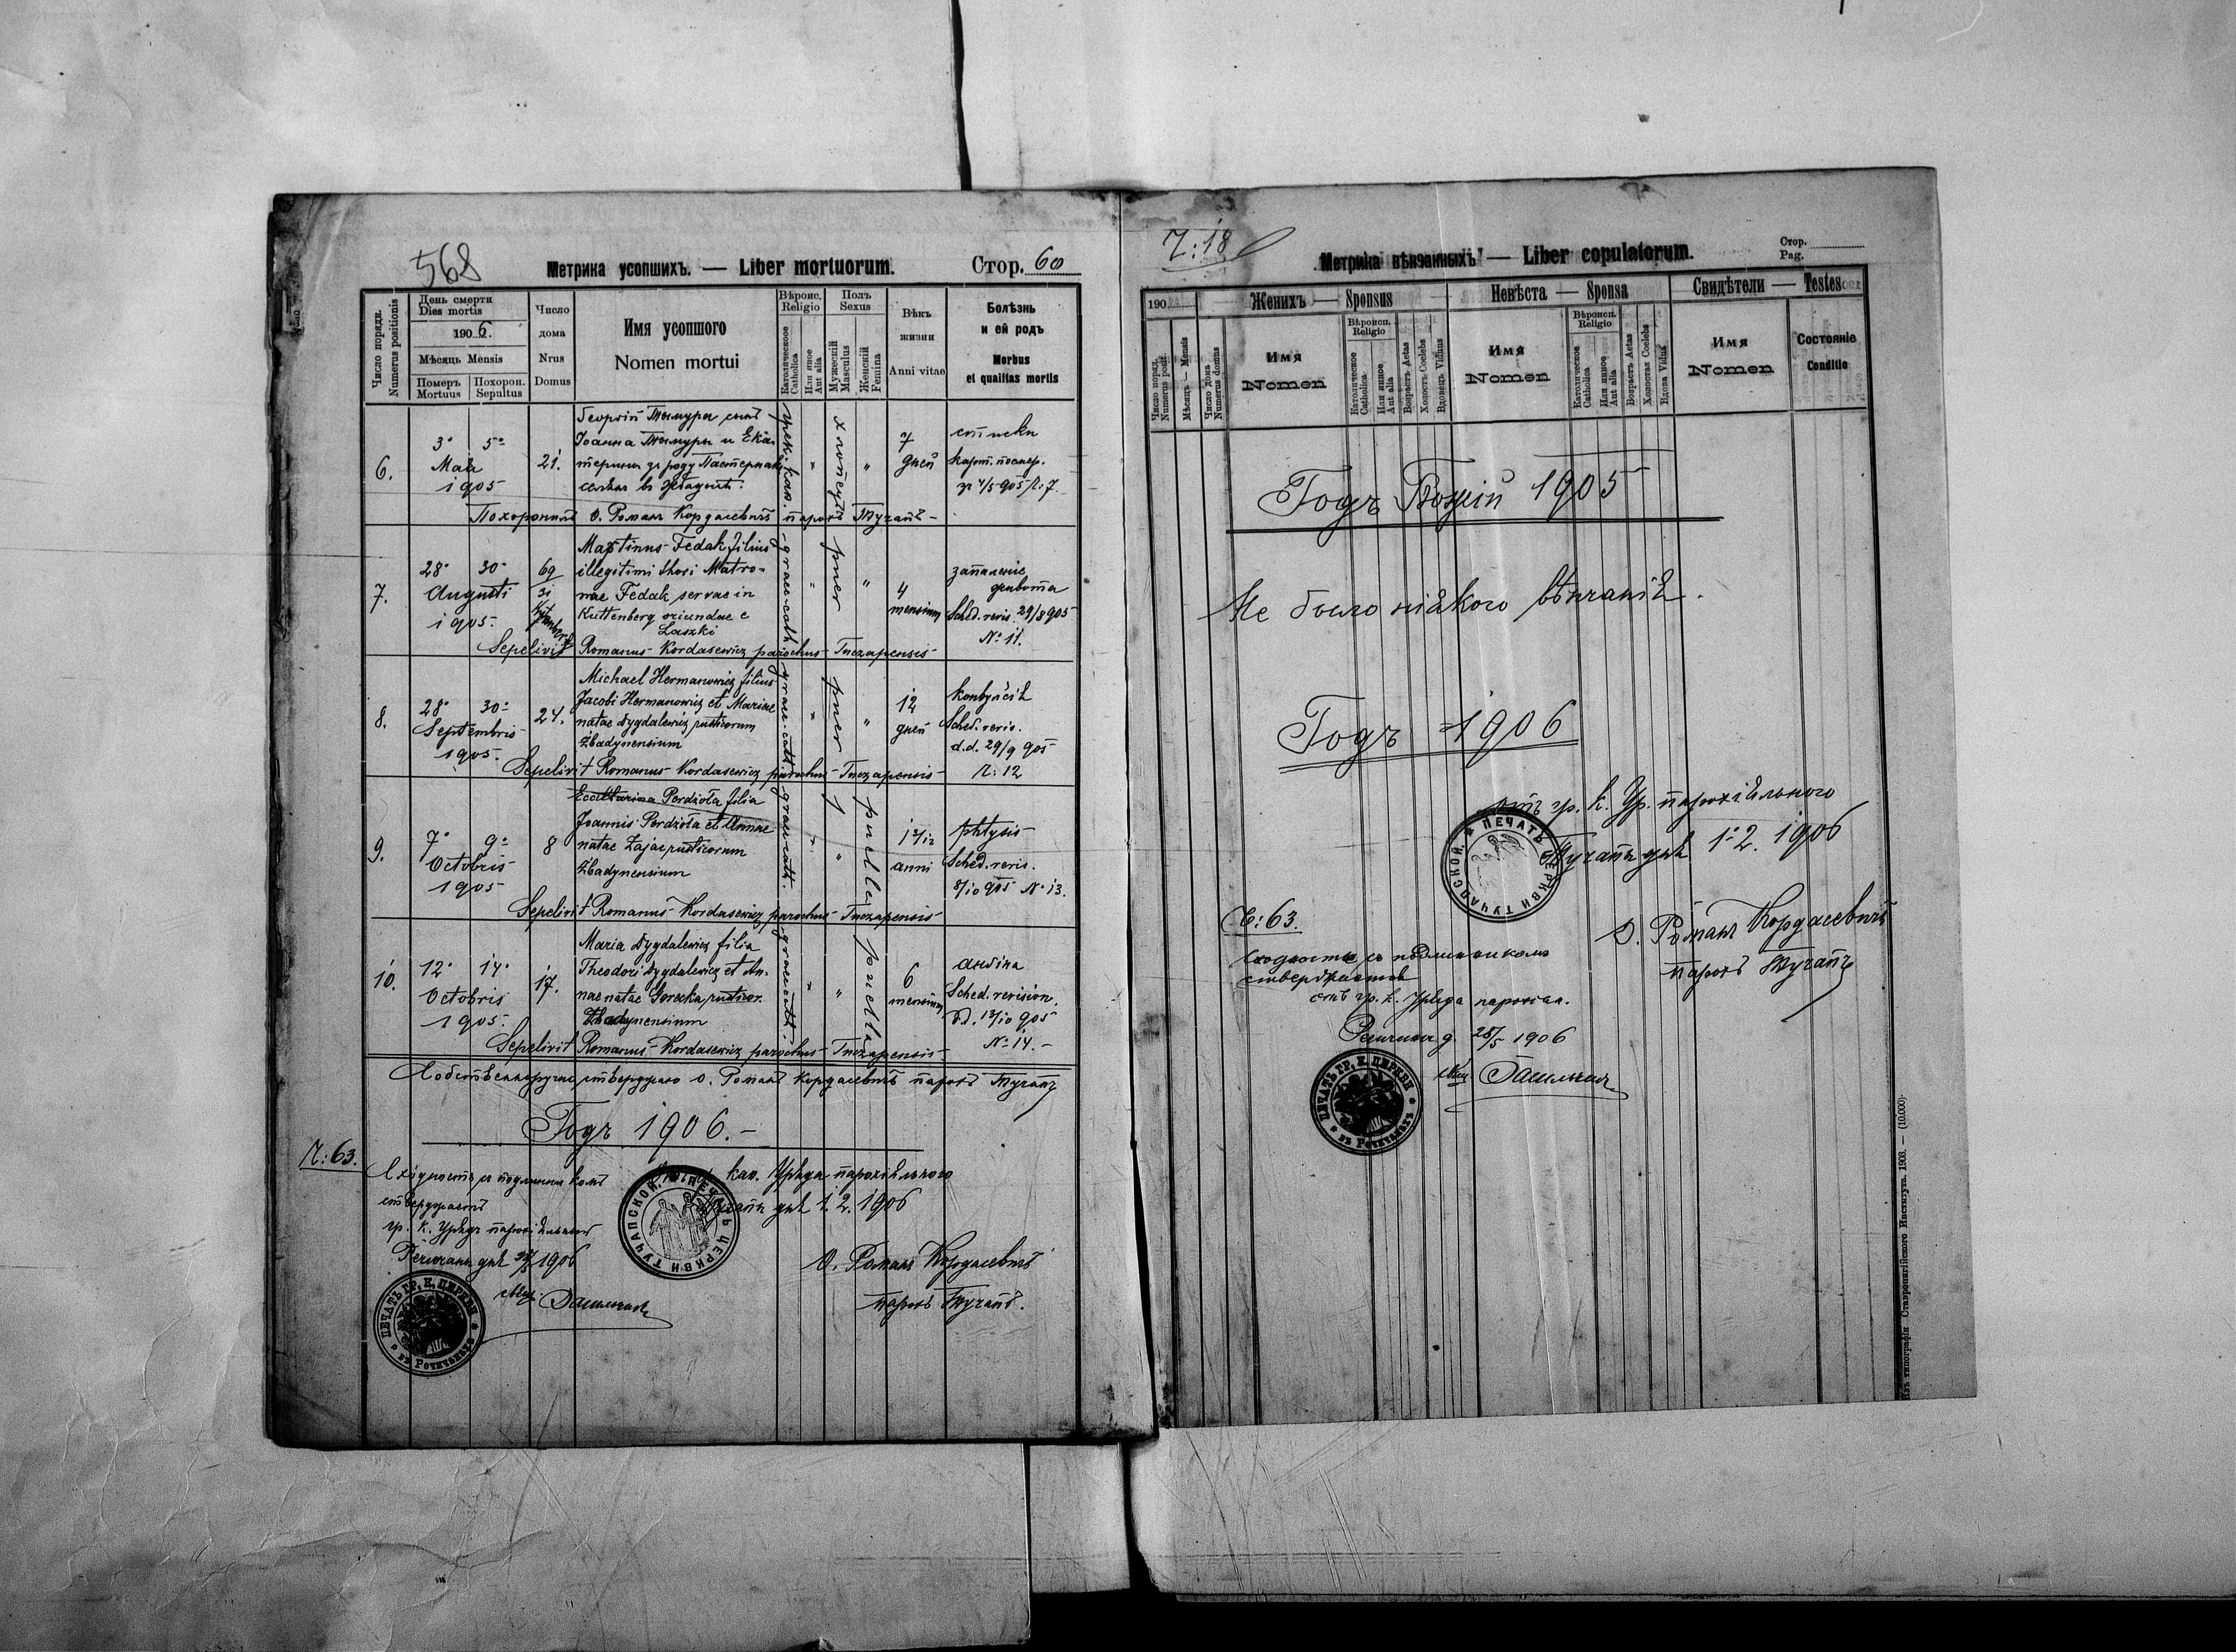 568
Метрика усопшихъ. — Liber mortuorum.
Стор. 60
Число порядк.
Numerus positionis
День смерти
Dies mortis
1906.
Мѣсяць Mensis
Померъ
Mortuus
Похорон.
Sepultus
Число
дома
Nrus
Domus
Имя усопшого
Nomen mortui
Вѣроис.
Religio
Католическое
Catholica
Или иное
Aut alia
Полъ
Sexus
Мужескій
Masculus
Женскій
Femina
Вѣкъ
жизни
Anni vitae
Болѣзнь
и ей родъ
Morbus
et qualitas mortis
6.
3· 5·
Мая
1905
21.
Георгій Тымура сынъ
Іоанна Тымуры и Ека-
терины зъ роду Пастернакъ
"
"
7
дней
карт. посмер.
зр 4/5 905 Ч: 7.
Похоронилъ о. Романъ Кордасевичъ парохъ Тучапъ-
7.
28· 30·
Augusti
1905.
69
31
Martinus Fedak filius
illegitimi thori Matro-
nae Fedak servae in
Kuttenberg oriundae e
Laszki
graec-cath.
"
puer
"
4
mensium
запаленіе
живота
Sched. revis. 29/8 905
No 11.
Sepelivit Romanus Kordasewicz parochus Tuczapensis
8.
28· 30·
Septembris
1905.
24.
Michael Hermanowicz filius
Jacobi Hermanowicz et Mariae
natae Dygdalewicz rusticorum
Zbadynensium
graec-cath.
"
puer
"
12
дней
Sched. revis.
d.d. 29/9 905
Ч: 12
Sepelivit Romanus Kordasewicz parochus Tuczapensis
9.
7· 9·
Octobris
1905
8
Ecatharina Perdżola filia
Joannis Perdżola et Annae
natae Zając rusticorum
Zbadynensium
graec-cath.
"
"
puella
anni
phtysis
Sched. revis.
8/10 905 No 13.
Sepelivit Romanus Kordasewicz parochus Tuczapensis
10.
12· 14·
Octobris
1905.
17.
Maria Dygdalewicz filia
Theodori Dygdalewicz et An-
nae natae Gorecka rusticor.
Zbadynensium
graec-cath.
"
"
puella
6
mensium
ангіна
Sched. revision.
d.d. 13/10 905
No 14.-
Sepelivit Romanus Kordasewicz parochus Tuczapensis
Собственноручно стверджаю о. Романъ Кордасевичъ парохъ Тучапъ
Годъ 1906.-
Ч: 63.
Сходность съ подлинникомъ
стверджаетъ
гр. к. Урядъ парохіяльный
Речичаны дня 28/5 1906
кае. Уряда парохіяльного
Тучапы дня 1.2.1906
О. Романъ Кордасевичъ
парохъ Тучапъ.
ПЕЧАТЬ ЦЕРКВИ ТУЧАПСКОЙ.
ПЕЧАТЬ ГР. К. ЦЕРКВИ въ Речичанахъ
Ч: 18
Метрика вѣнчанныхъ — Liber copulatorum.
Стор.
Pag.
190
Число поряд.
Numerus posit.
Мѣсяць — Mensis
Число дома
Numerus domus
Женихъ — Sponsus
Имя
Nomen
Вѣроисп.
Religio
Католическое
Catholica
Или иное
Aut alia
Возрастъ Aetas
Холостъ Coelebs
Вдовець Viduus
Невѣста — Sponsa
Имя
Nomen
Вѣроисп.
Religio
Католическое
Catholica
Или иное
Aut alia
Возрастъ Aetas
Холостая Coelebs
Вдова Vidua
Свидѣтели — Testes
Имя
Nomen
Состояніе
Conditio
Годъ Божій 1905
Не было ніякого вѣнчанія.
Годъ 1906
отъ гр. к. Ур. парохіяльного
Тучапы дня 1·2. 1906
ПЕЧАТЬ ЦЕРКВИ ТУЧАПСКОЙ.
О. Романъ Кордасевичъ
парохъ Тучапъ
Ч: 63.
Сходность съ подлинникомъ
стверджаетъ
отъ гр. к. Уряда парохіал.
Речичаны д. 28/5 1906
ПЕЧАТЬ ГР. К. ЦЕРКВИ въ Речичанахъ
Изъ типографіи Ставропигійского Института. 1903. — (10.000)